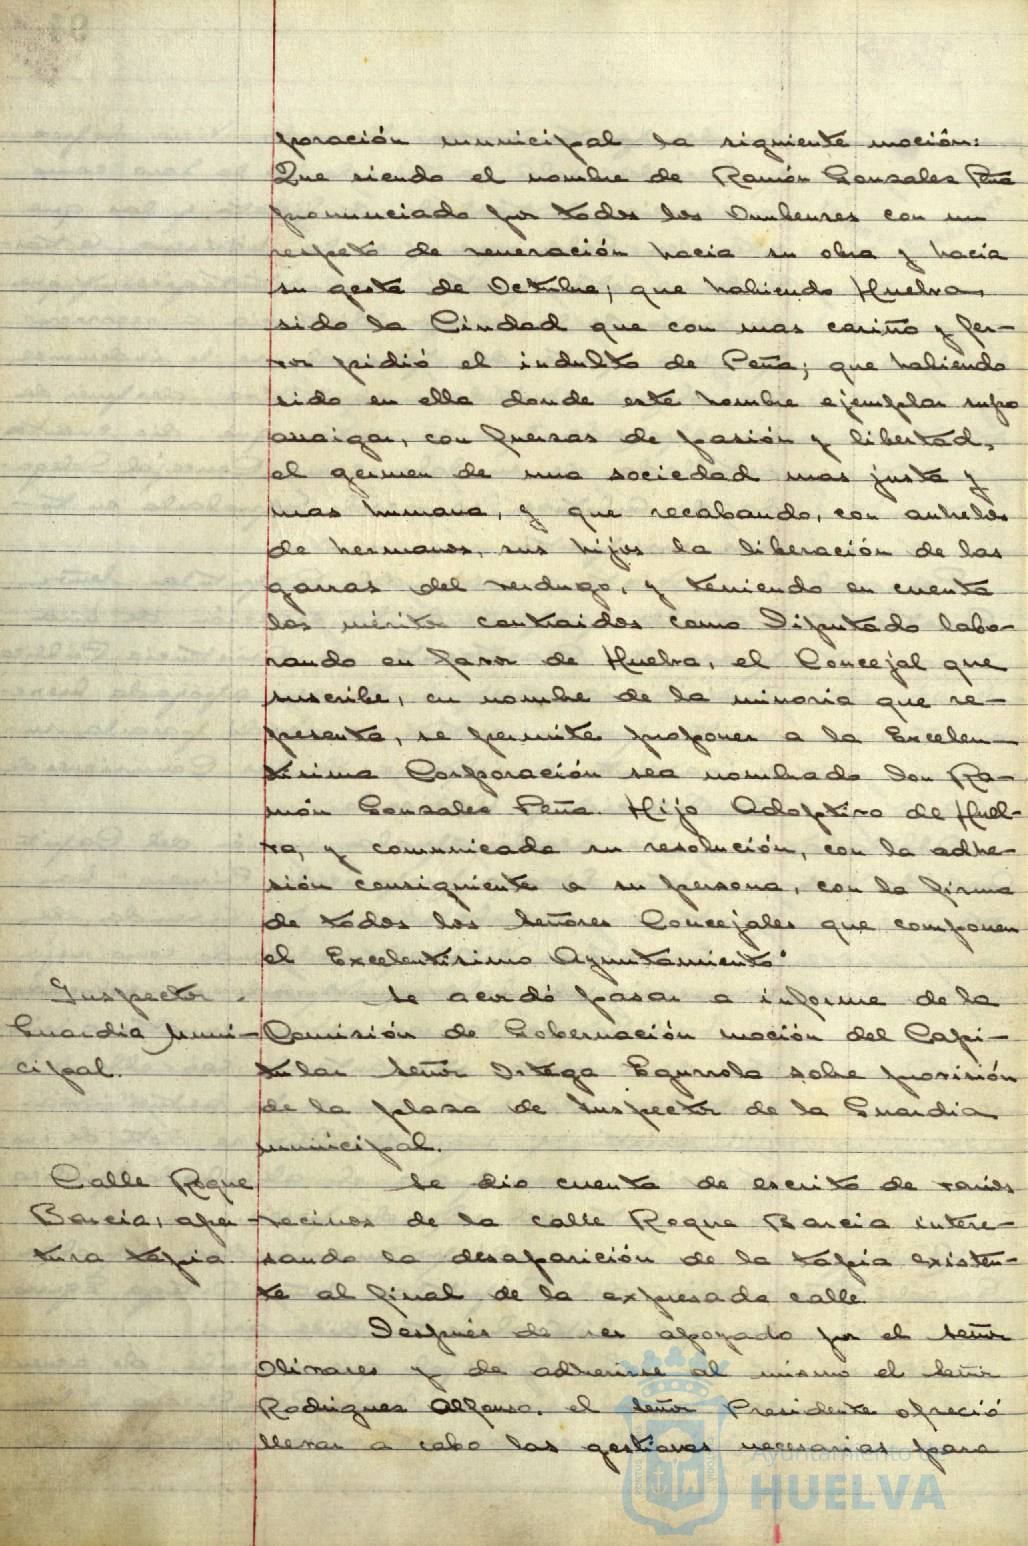 poración municipal la siguiente moción:
Que siendo el nombre de Ramón Gonzales Peña
pronunciado por todos los Onubenses con un
respeto de veneración hacia su obra y hacia
su gesta de Octubre; que habiendo Huelva
sido la Ciudad que con mas cariño y fer-
vor pidió el indulto de Peña; que habiendo
sido en ella donde este hombre ejemplar supo
arraigar, con fuerzas de pasión y libertad,
el germen de una sociedad mas justa y
mas humana, y que recabando, con anhelos
de hermanos, sus hijos la liberación de las
garras del verdugo, y teniendo en cuenta
los méritos contraidos como Diputado labo-
rando en favor de Huelva, el Concejal que
suscribe, en nombre de la minoria que re-
presenta, se permite proponer a la Excelen-
tisima Corporación sea nombrado Don Ra-
món Gonzales Peña Hijo Adoptivo de Huel-
va, y comunicada su resolución, con la adhe-
sión consiguiente a su persona, con la firma
de todos los Señores Concejales que componen
el Excelentisimo Ayuntamiento"
Inspector
Guardia Muni-
cipal.
Se acordó pasar a informe de la
Comisión de Gobernación moción del Capi-
tular Señor Ortega Egurrola sobre provisión
de la plaza de Inspector de la Guardia
municipal.
Calle Roque
Barcia, aper-
tura tapia
Se dio cuenta de escrito de varios
vecinos de la calle Roque Barcia intere-
sando la desaparición de la tapia existen-
te al final de la expresada calle
Después de ser apoyado por el Señor
Olivares y de adherirse al mismo el Señor
Rodriguez Alfonso, el Señor Presidente ofreció
llevar a cabo las gestiones necesarias para
Ayuntamiento de
HUELVA